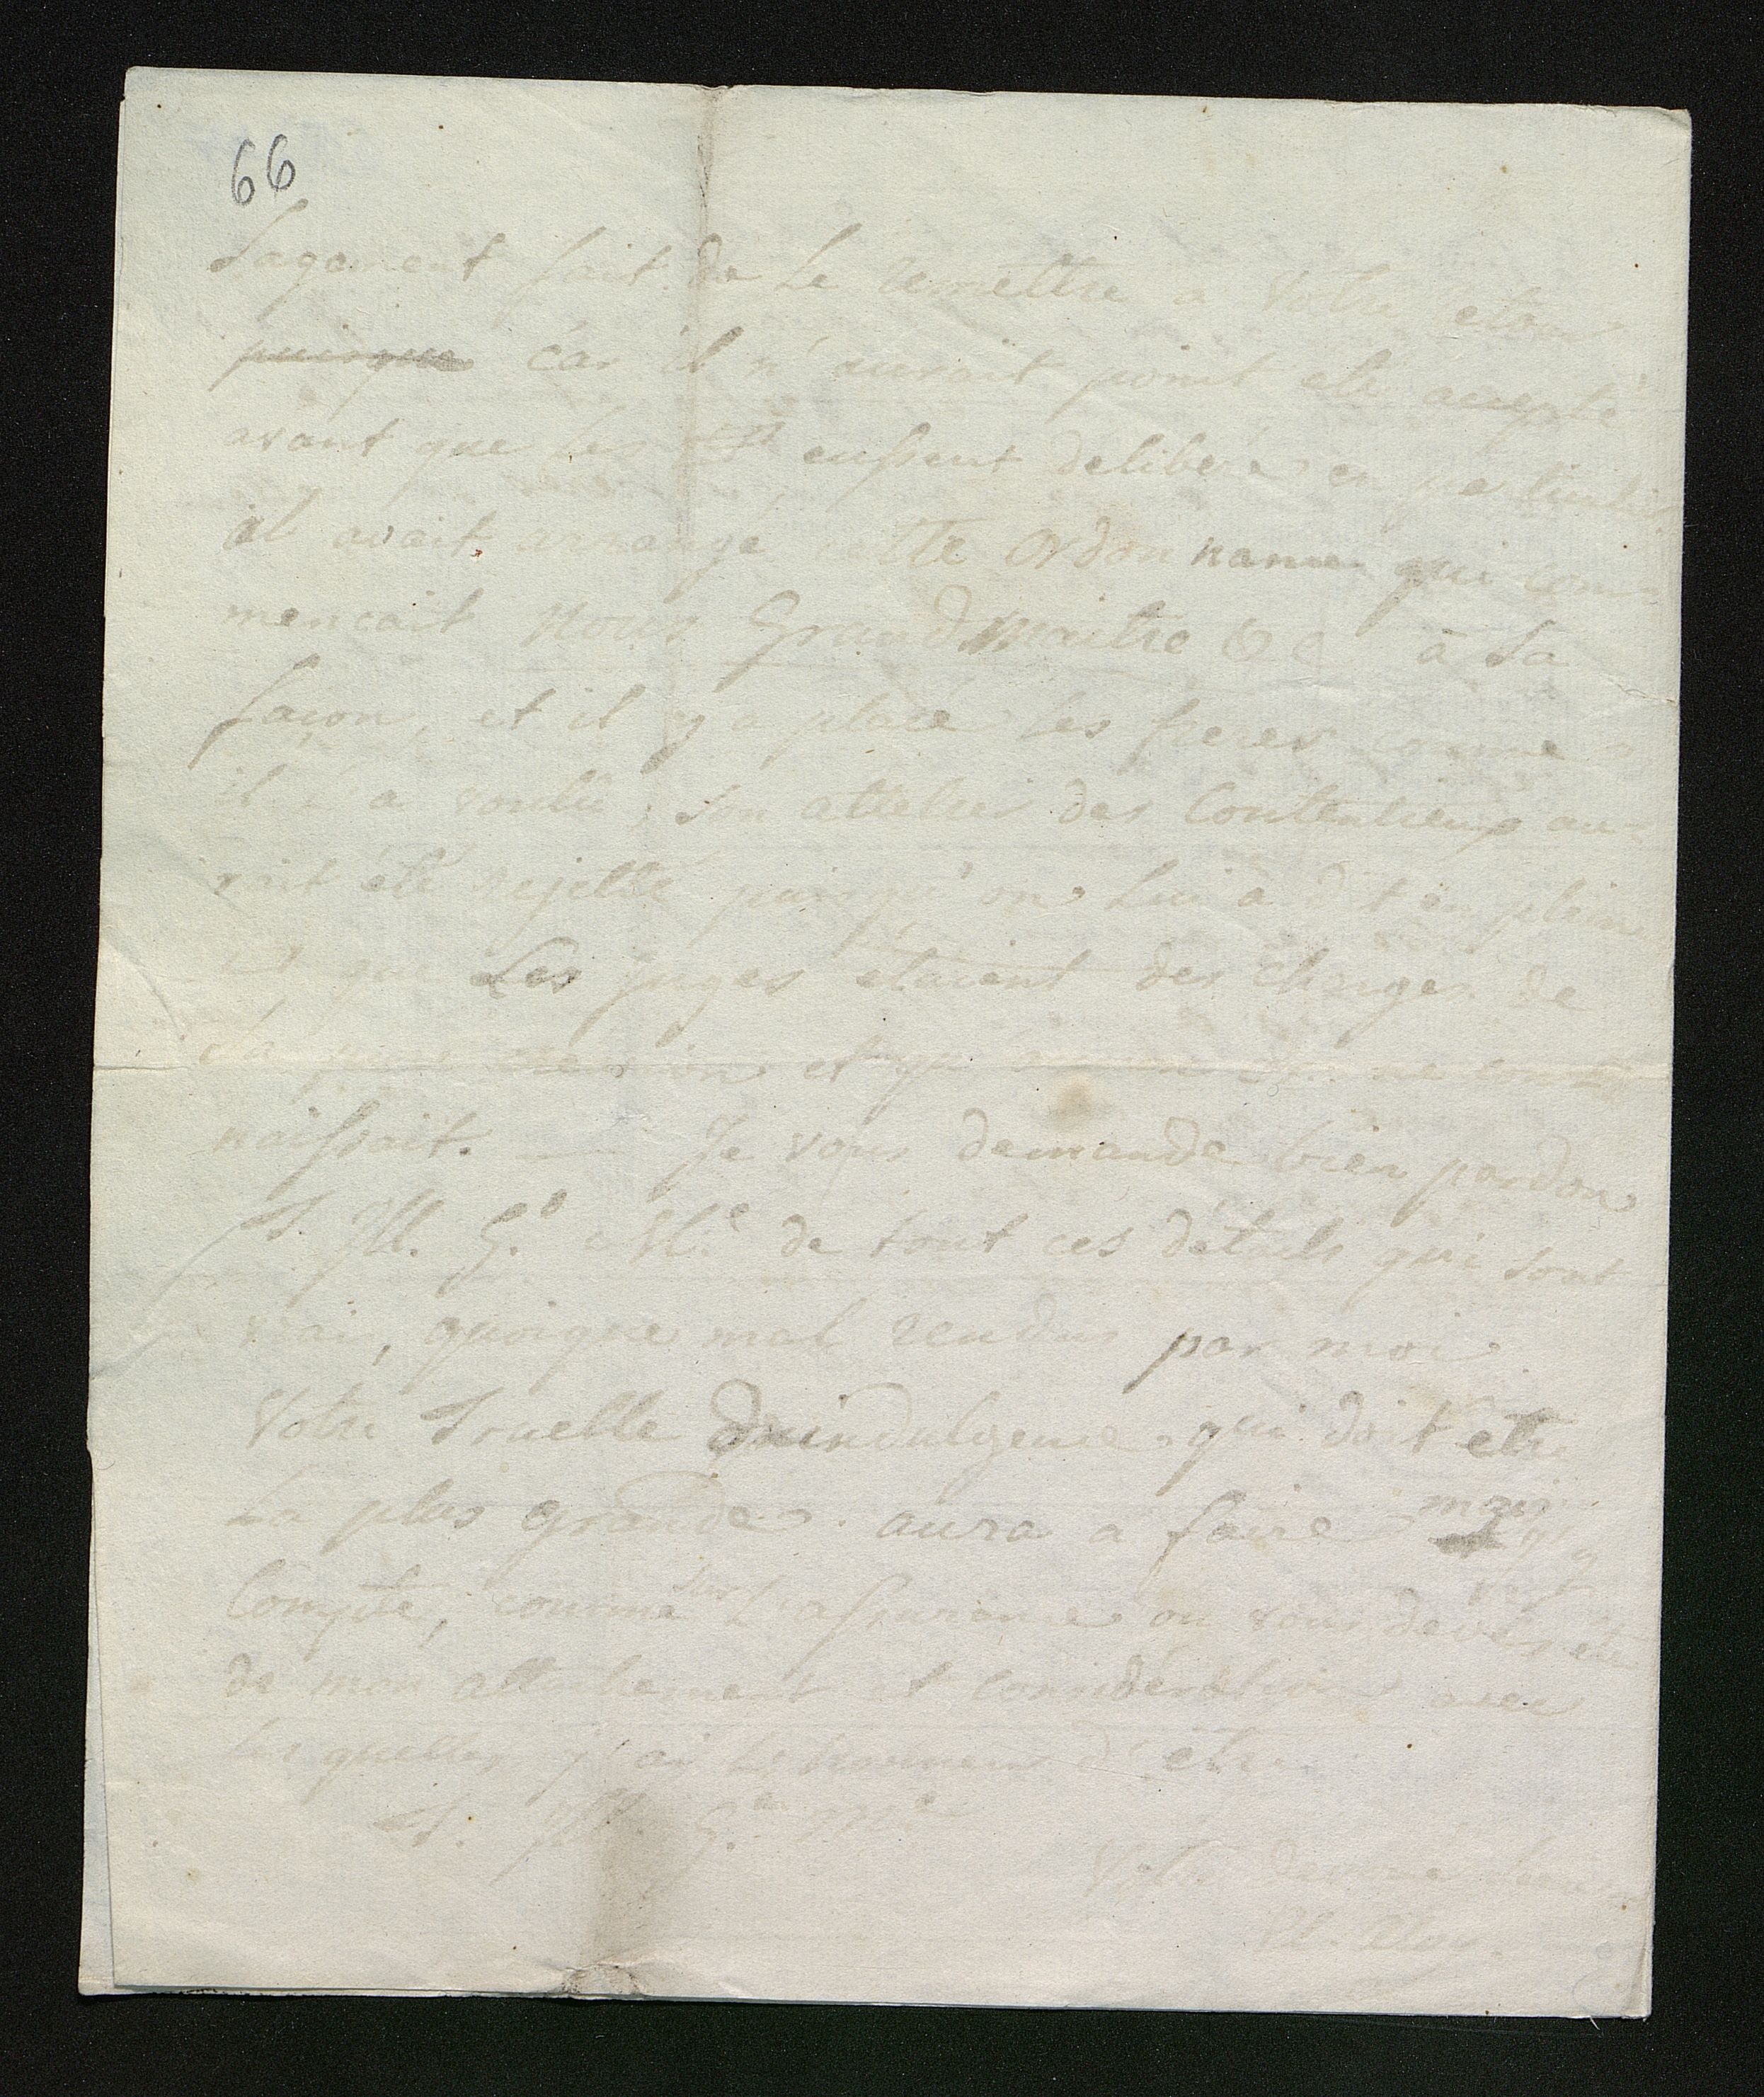 66
Sagement fait de Le remettre a Votre
puisque car il n'aurait point eté accepté
avant que Les eussent deliberé en
il avait arrangé cette Ordonnance qui com=
mencait nous Grand Maitre &c à Sa
facon, et il y a placé les freres comme
il L'a voulu, son attelier des Contentieux au=
rait été rejetté puisqu'on Lui a dit en plein
que Les Juges etaient des charges de
Sa pure creation et qu' ne con
naissait. — Je vous demande bien pardon
S. Ill. G.e M.e de tout ces détails qui sont
vrais, quoique mal rendus par moi
Votre Truelle d'indulgence qui doit etre
La plus grande aura a faire mais
Compte, comme sur L'assurance ou vous devés etre
de mon attachement et considération avec
Lesquelles j'ai L'honneur d'etre
S. Ill. G. M.e
Votre